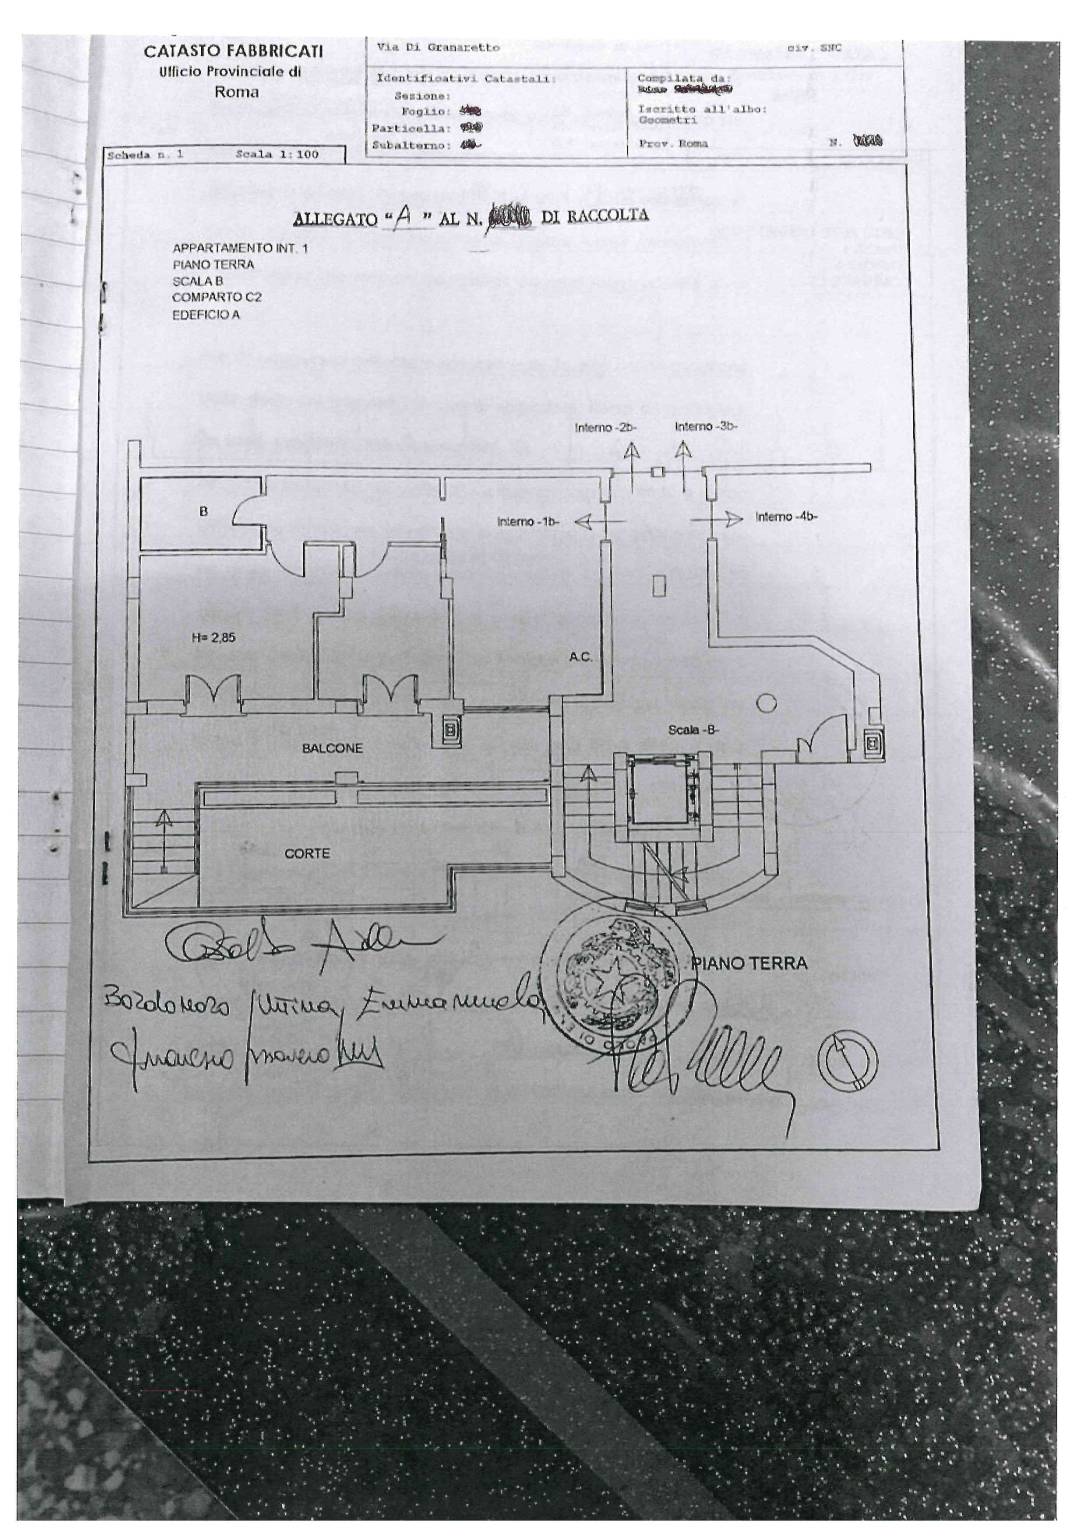 CATASTO FABBRICATI
Ufficio Provinciale di
Roma
Via Di Granaretto
civ. SNC
Identificativi Catastali:
Sezione:
Foglio:
Particella:
Subalterno:
Compilata da:
Iscritto all'albo:
Geometri
Prov. Roma
N.
Scheda n. 1
Scala 1:100
ALLEGATO "A" AL N. DI RACCOLTA
APPARTAMENTO INT. 1
PIANO TERRA
SCALA B
COMPARTO C2
EDEFICIO A
Interno -2b-
Interno -3b-
B
Interno -1b-
Interno -4b-
H= 2,85
A.C.
Scala -B-
BALCONE
CORTE
PIANO TERRA